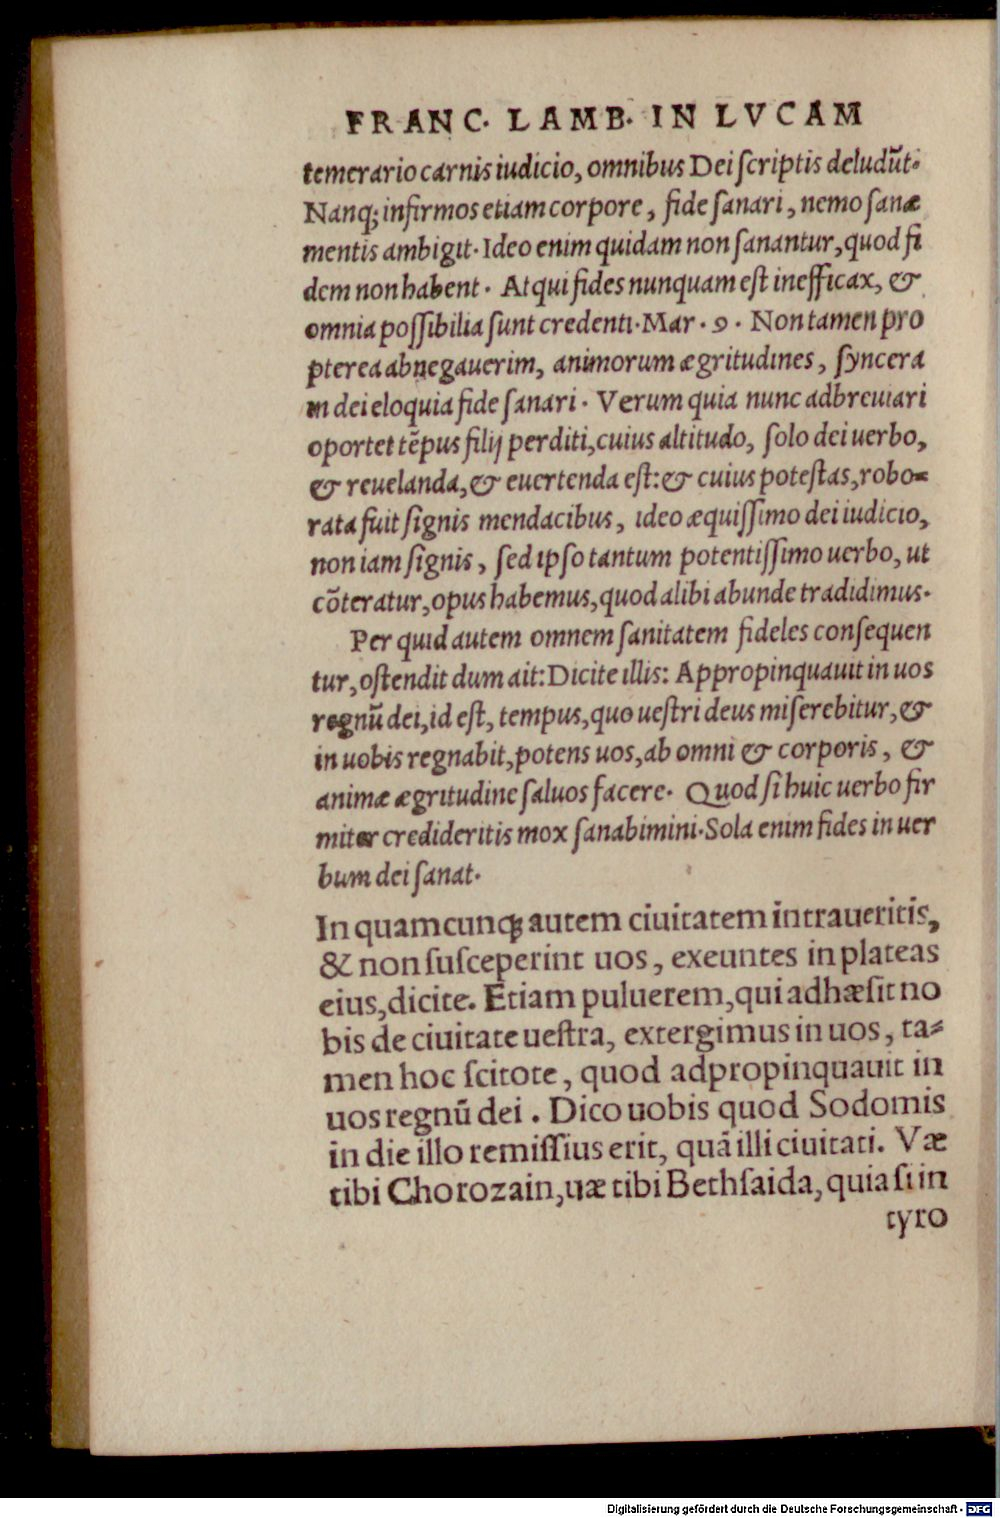 FRANC. LAMB. IN LVCAM
temerario carnis iudicio, omnibus Dei ſcriptis deludūt.
Nanq; infirmos etiam corpore, fide ſanari, nemo ſanæ
mentis ambigit. Ideo enim quidam non ſanantur, quod fi
dem non habent. Atqui fides nunquam eſt inefficax, &
omnia poſſibilia ſunt credenti. Mar. 9. Non tamen pro
pterea abnegauerim, animorum ægritudines, ſyncera
in dei eloquia fide ſanari. Verum quia nunc adbreuiari
oportet tẽpus filij perditi, cuius altitudo, ſolo dei uerbo,
& reuelanda, & euertenda eſt: & cuius poteſtas, robo=
rata fuit ſignis mendacibus, ideo æquiſſimo dei iudicio,
non iam ſignis, ſed ipſo tantum potentiſſimo uerbo, ut
cõteratur, opus habemus, quod alibi abunde tradidimus.
Per quid autem omnem ſanitatem fideles conſequen
tur, oſtendit dum ait: Dicite illis: Appropinquauit in uos
regnũ dei, id eſt, tempus, quo ueſtri deus miſerebitur, &
in uobis regnabit, potens uos, ab omni & corporis, &
animæ ægritudine ſaluos facere. Quod ſi huic uerbo fir
miter credideritis mox ſanabimini. Sola enim fides in uer
bum dei ſanat.
In quamcunq; autem ciuitatem intraueritis,
& non ſuſceperint uos, exeuntes in plateas
eius, dicite. Etiam puluerem, qui adhæſit no
bis de ciuitate ueſtra, extergimus in uos, ta=
men hoc ſcitote, quod adpropinquauit in
uos regnũ dei. Dico uobis quod Sodomis
in die illo remiſſius erit, quã illi ciuitati. Væ
tibi Chorozain, uæ tibi Bethſaida, quia ſi in
tyro
Digitalisierung gefördert durch die Deutsche Forschungsgemeinschaft - DFG